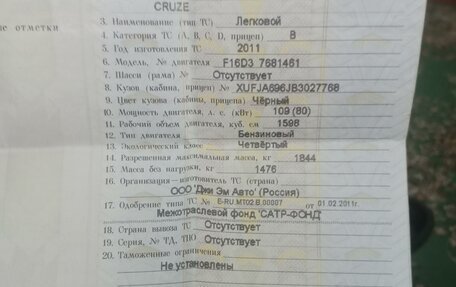 е отметки
CRUZE
3. Наименование (тип ТС) Легковой
4. Категория ТС (А, В, С, D, прицеп) В
5. Год изготовления ТС 2011
6. Модель, № двигателя F16D3 7681461
7. Шасси (рама) № Отсутствует
8. Кузов (кабина, прицеп) № XUFJA696JB3027768
9. Цвет кузова (кабины, прицепа) Чёрный
10. Мощность двигателя, л. с. (кВт) 109 (80)
11. Рабочий объем двигателя, куб. см 1598
12. Тип двигателя Бензиновый
13. Экологический класс Четвёртый
14. Разрешенная максимальная масса, кг 1844
15. Масса без нагрузки, кг 1476
16. Организация—изготовитель ТС (страна)
ООО 'Джи Эм Авто' (Россия)
17. Одобрение типа ТС № E-RU.MT02.B.00007 от 01.02.2011г.
Межотраслевой фонд 'САТР-ФОНД'
18. Страна вывоза ТС Отсутствует
19. Серия, № ТД, ТПО Отсутствует
20. Таможенные ограничения
Не установлены